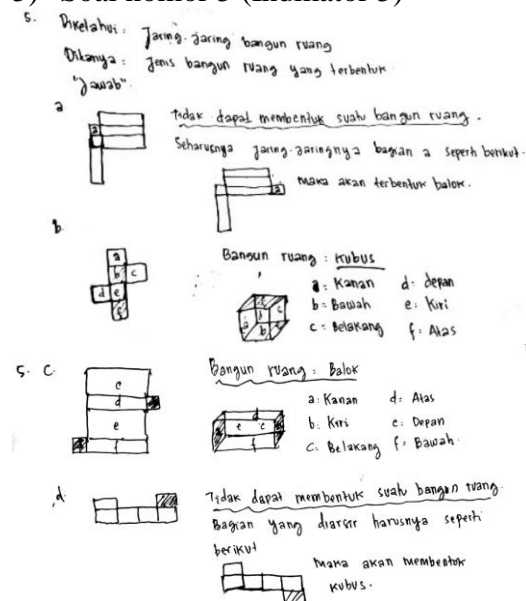 3) Soal nomor 5 (Indikator 3)
5. Diketahui : Jaring-jaring bangun ruang
Ditanya : Jenis bangun ruang yang terbentuk
"Jawab".
a
a
Tidak dapat membentuk suatu bangun ruang.
Seharusnya jaring-jaringnya bagian a seperti berikut.
a
Maka akan terbentuk balok.
b.
a
b c
d e
f
Bangun ruang : kubus
a : Kanan d : depan
b = Bawah e : Kiri
c = Belakang f : Atas
5. C.
c
d
e
f
Bangun ruang : Balok
a : Kanan d : Atas
b : Kiri e : Depan
c : Belakang f : Bawah
d
e c
f
d
Tidak dapat membentuk suatu bangun ruang
Bagian yang diarsir harusnya seperti
berikut
Maka akan membentuk
kubus.